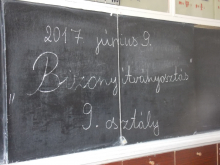 2017 június 9.
„Bizonyítványosztás”
9. osztály